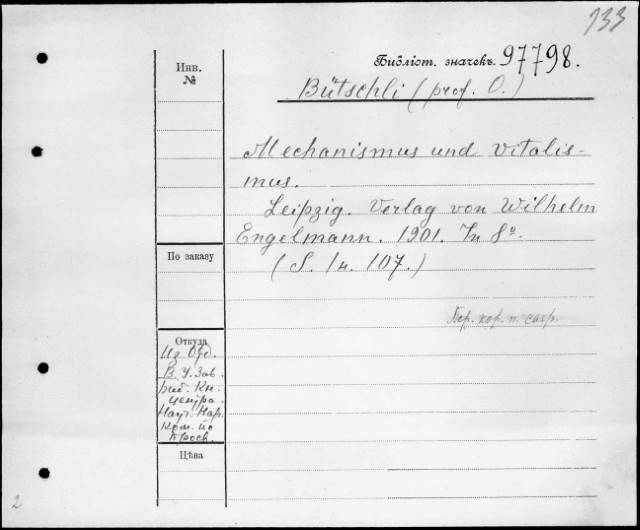 133
Инв.
№
Библіот. значекъ 97798.
Bütschli (prof. O.)
Mechanismus und Vitalis-
mus.
Leipzig. Verlag von Wilhelm
Engelmann. 1901. In 8º.
(S. 1 н. 107.)
По заказу
Пер. кор. п. сахр.
Откуда
Из Отд.
В. У. Зав.
Кн.
центра.
Науч. Нар.
Ком. по
Просв.
Цѣна
2